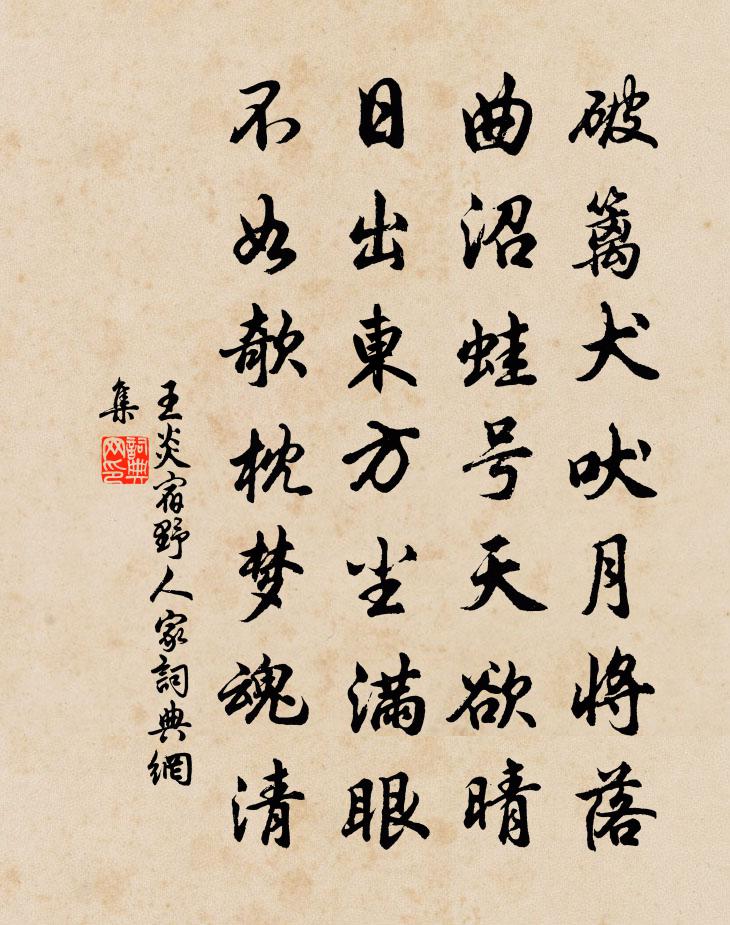 破籬犬吠月將落
曲沼蛙号天欲晴
日出東方尘满眼
不如欹枕梦魂清
王炎宿野人家詞典網
集
詞典
网印